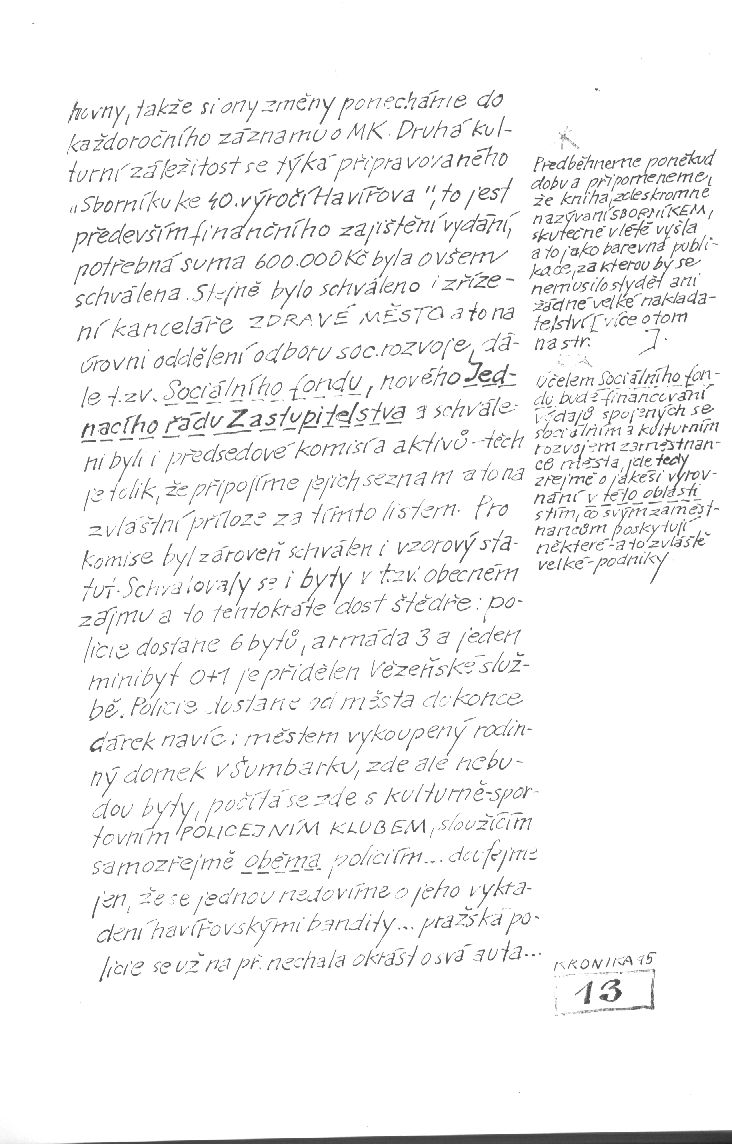 hovny, takže si ony změny ponecháme do
každoročního záznamu o MK. Druhá kul-
turní záležitost se týká připravovaného
„Sborníku ke 40. výročí Havířova", to jest
především finančního zajištění vydání,
potřebná suma 600.000 Kč byla ovšem
schválena. Stejně bylo schváleno i zříze-
ní kanceláře ZDRAVÉ MĚSTO a to na
úrovni oddělení odboru soc. rozvoje, dá-
le t.zv. Sociálního fondu, nového Jed-
nacího řádu Zastupitelstva a schvále-
ni byli i předsedové komisí a aktivů - těch
je tolik, že připojíme jejich seznam a to na
zvláštní příloze za tímto listem. Pro
komise byl zároveň schválen i vzorový sta-
tut. Schvalovaly se i byty v t.zv. obecném
zájmu a to tentokráte dost štědře: po-
licie dostane 6 bytů, armáda 3 a jeden
minibyt 0+1 je přidělen Vězeňské služ-
bě. Policie dostane od města dokonce
dárek navíc: městem vykoupený rodin-
ný domek v Šumbarku, zde ale nebu-
dou byty, počítá se zde s kulturně-spor-
tovním POLICEJNÍM KLUBEM, sloužícím
samozřejmě oběma policiím... doufejme
jen, že se jednou nedovíme o jeho vykra-
dení havířovskými bandity... pražská po-
licie se už na př. nechala okrást o svá auta...
Předběhneme poněkud
dobu a připomeneme,
že kniha, zde skromně
nazývaná SBORNÍKEM,
skutečně v létě vyšla
a to jako barevná publi-
kace, za kterou by se
nemusilo stydět ani
žádné velké naklada-
telství [více o tom
na str. ].
Účelem Sociálního fon-
du bude financování
výdajů spojených se
sociálním a kulturním
rozvojem zaměstnan-
ců města, jde tedy
zřejmě o jakési vyrov-
nání v této oblasti
s tím, co svým zaměst-
nancům poskytují
některé - a to zvláště
velké - podniky
KRONIKA 95
13